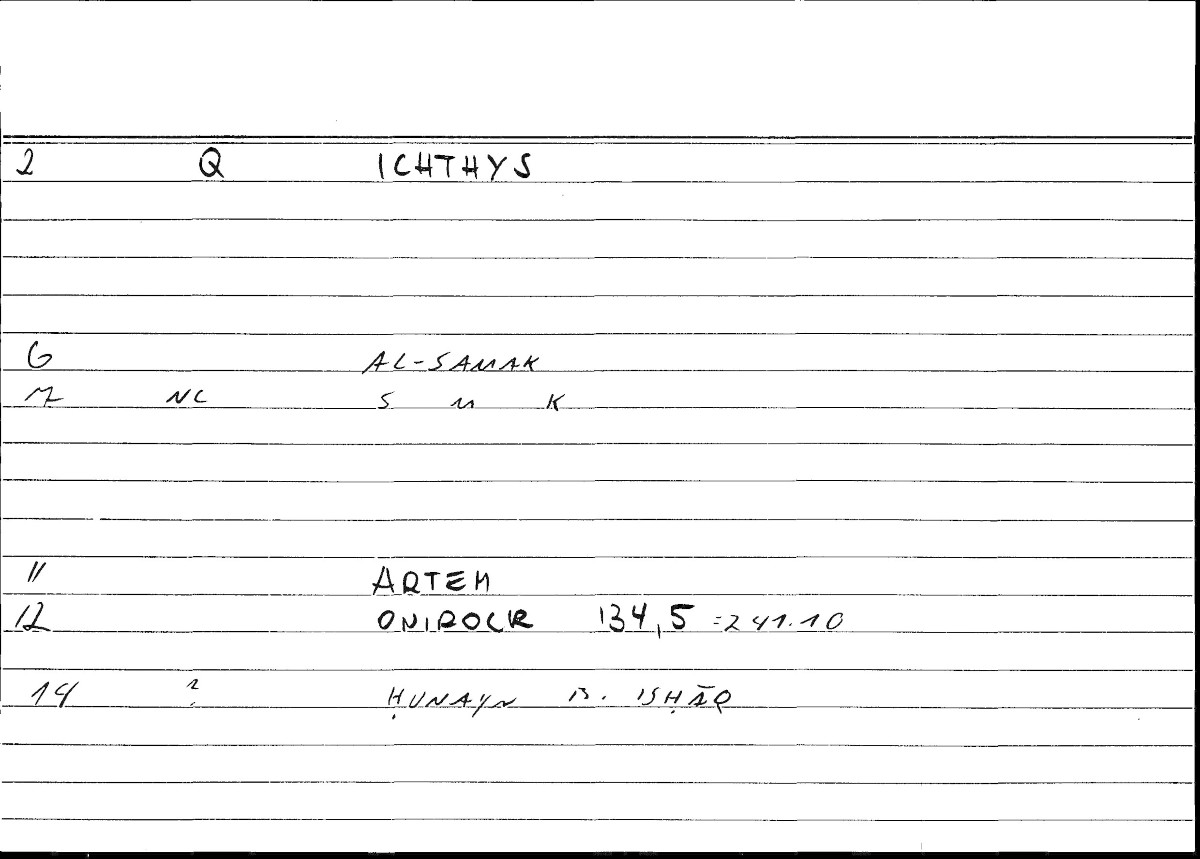 2 Q ICHTHYS
6 AL-SAMAK
7 NC S M K
11 ARTEM
12 ONIROCR 134,5 =241.10
14 ? ḤUNAYN B. ISḤĀQ